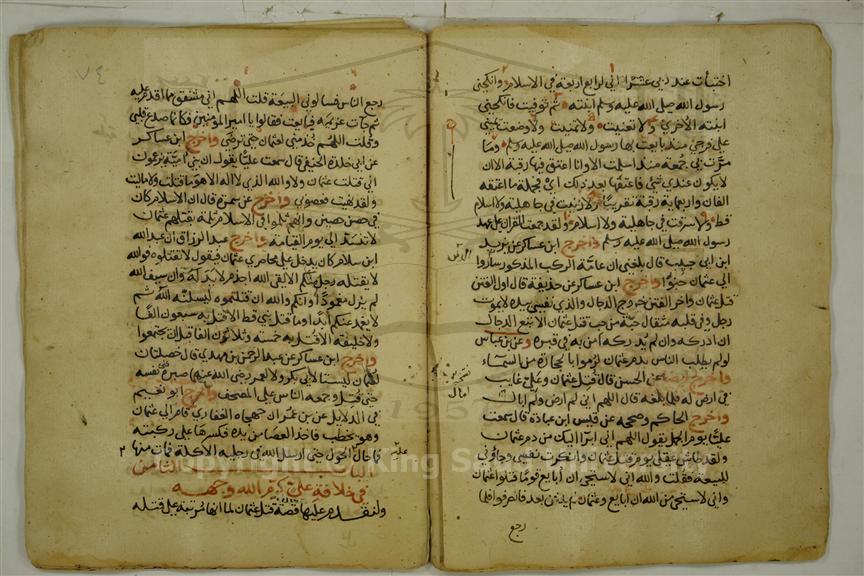 اختبأت عند ربي عشرا اني لرابع اربعة في الاسلام وانكحني
رسول الله صلى الله عليه وسلم ابنته ثم توفيت فانكحني
ابنته الاخرى ولا تغنيت ولا تمنيت ولا وضعت يميني
على فرجي منذ بايعت بها رسول الله صلى الله عليه وسلم وما
مرت بي جمعة منذ اسلمت الا وانا اعتق فيها رقبة الا ان
لا يكون عندي شيء فاعتقها بعد ذلك اي فجملة ما اعتقه
الفان واربعماية رقبة تقريبا ولا زنيت في جاهلية ولا اسلام
قط ولا سرقت في جاهلية ولا اسلام ولقد جمعت القران على عهد
رسول الله صلى الله عليه وسلم واخرج ابن عساكر عن يزيد
ابن ابي حبيب قال بلغني ان عامة الركب المذكور ساروا
الى عثمان جنوا واخرج ابن عساكر عن حذيفة قال اول الفتن
قتل عثمان واخر الفتن خروج الدجال والذي نفسي بيده لا يموت
رجل وفي قلبه مثقال حبة من حب قتل عثمان الا تبع الدجال
ان ادركه وان لم يدركه آمن به في قبره وعن ابن عباس
لو لم يطلب الناس بدم عثمان لرموا بالحجارة من السماء
واخرج ايضا عن الحسن قال قتل عثمان وعلي غايب
في ارض له فلما بلغه قال اللهم اني لم ارض ولم امال
واخرج الحاكم وصححه عن قيس ابن عبادة قال سمعت
عليا يوم الجمل يقول اللهم اني ابرا اليك من دم عثمان
ولقد طاش عقلي يوم قتل عثمان وانكرت نفسي وجاؤني
للبيعة فقلت والله اني لاستحي ان ابايع قوما قتلوا عثمان
واني لاستحي من الله ان ابايع وعثمان لم يدفن بعد فانصرفوا فلما
رجع
رجع الناس فسالوني البيعة قلت اللهم اني مشفق مما اقدم عليه
ثم جات عزيمة فبايعت فقالوا يا امير المؤمنين فكانما صدع قلبي
وقلت اللهم خذ مني لعثمان حتى ترضى واخرج ابن عساكر
عن ابي خلدة الحنفي قال سمعت عليا يقول ان بني امية يزعمون
اني قتلت عثمان ولا والله الذي لا اله الا هو ما قتلت ولا ماليت
ولقد نهيت فعصوني واخرج عن سمرة قال ان الاسلام كان
في حصن حصين وانهم ثلموا في الاسلام ثلمة بقتلهم عثمان
لا تنسد الى يوم القيامة واخرج عبد الرزاق ان عبد الله
ابن سلام كان يدخل على محاصري عثمان فيقول لا تقتلوه فوالله
لا يقتله رجل منكم الا لقي الله اجذم لا يد له وان سيف الله
لم يزل مغمودا وانكم والله ان قتلتموه ليسلنه الله ثم
لا يغمد عنكم ابدا وما قتل نبي قط الا قتل به سبعون الفا
ولا خليفة الا قتل به خمسة وثلاثون الفا قبل ان يجتمعوا
واخرج ابن عساكر عن عبد الرحمن بن مهدي قال خصلتان
لعثمان ليستا لابي بكر ولا لعمر رضي الله عنهما صبره نفسه
حتى قتل وجمعه الناس على المصحف واخرج ابو نعيم
في الدلايل عن بن عمر ان جهجاه الغفاري قام الى عثمان
وهو يخطب فاخذ العصا من يده فكسرها على ركبته
فما حال الحول حتى ارسل الله في رجليه الاكلة فمات منها
الباب الثامن
في خلافة علي كرم الله وجهه
ولنقدم عليها قصة قتل عثمان لما انها مرتبة على قتله
Copyright © King Saud University
1957